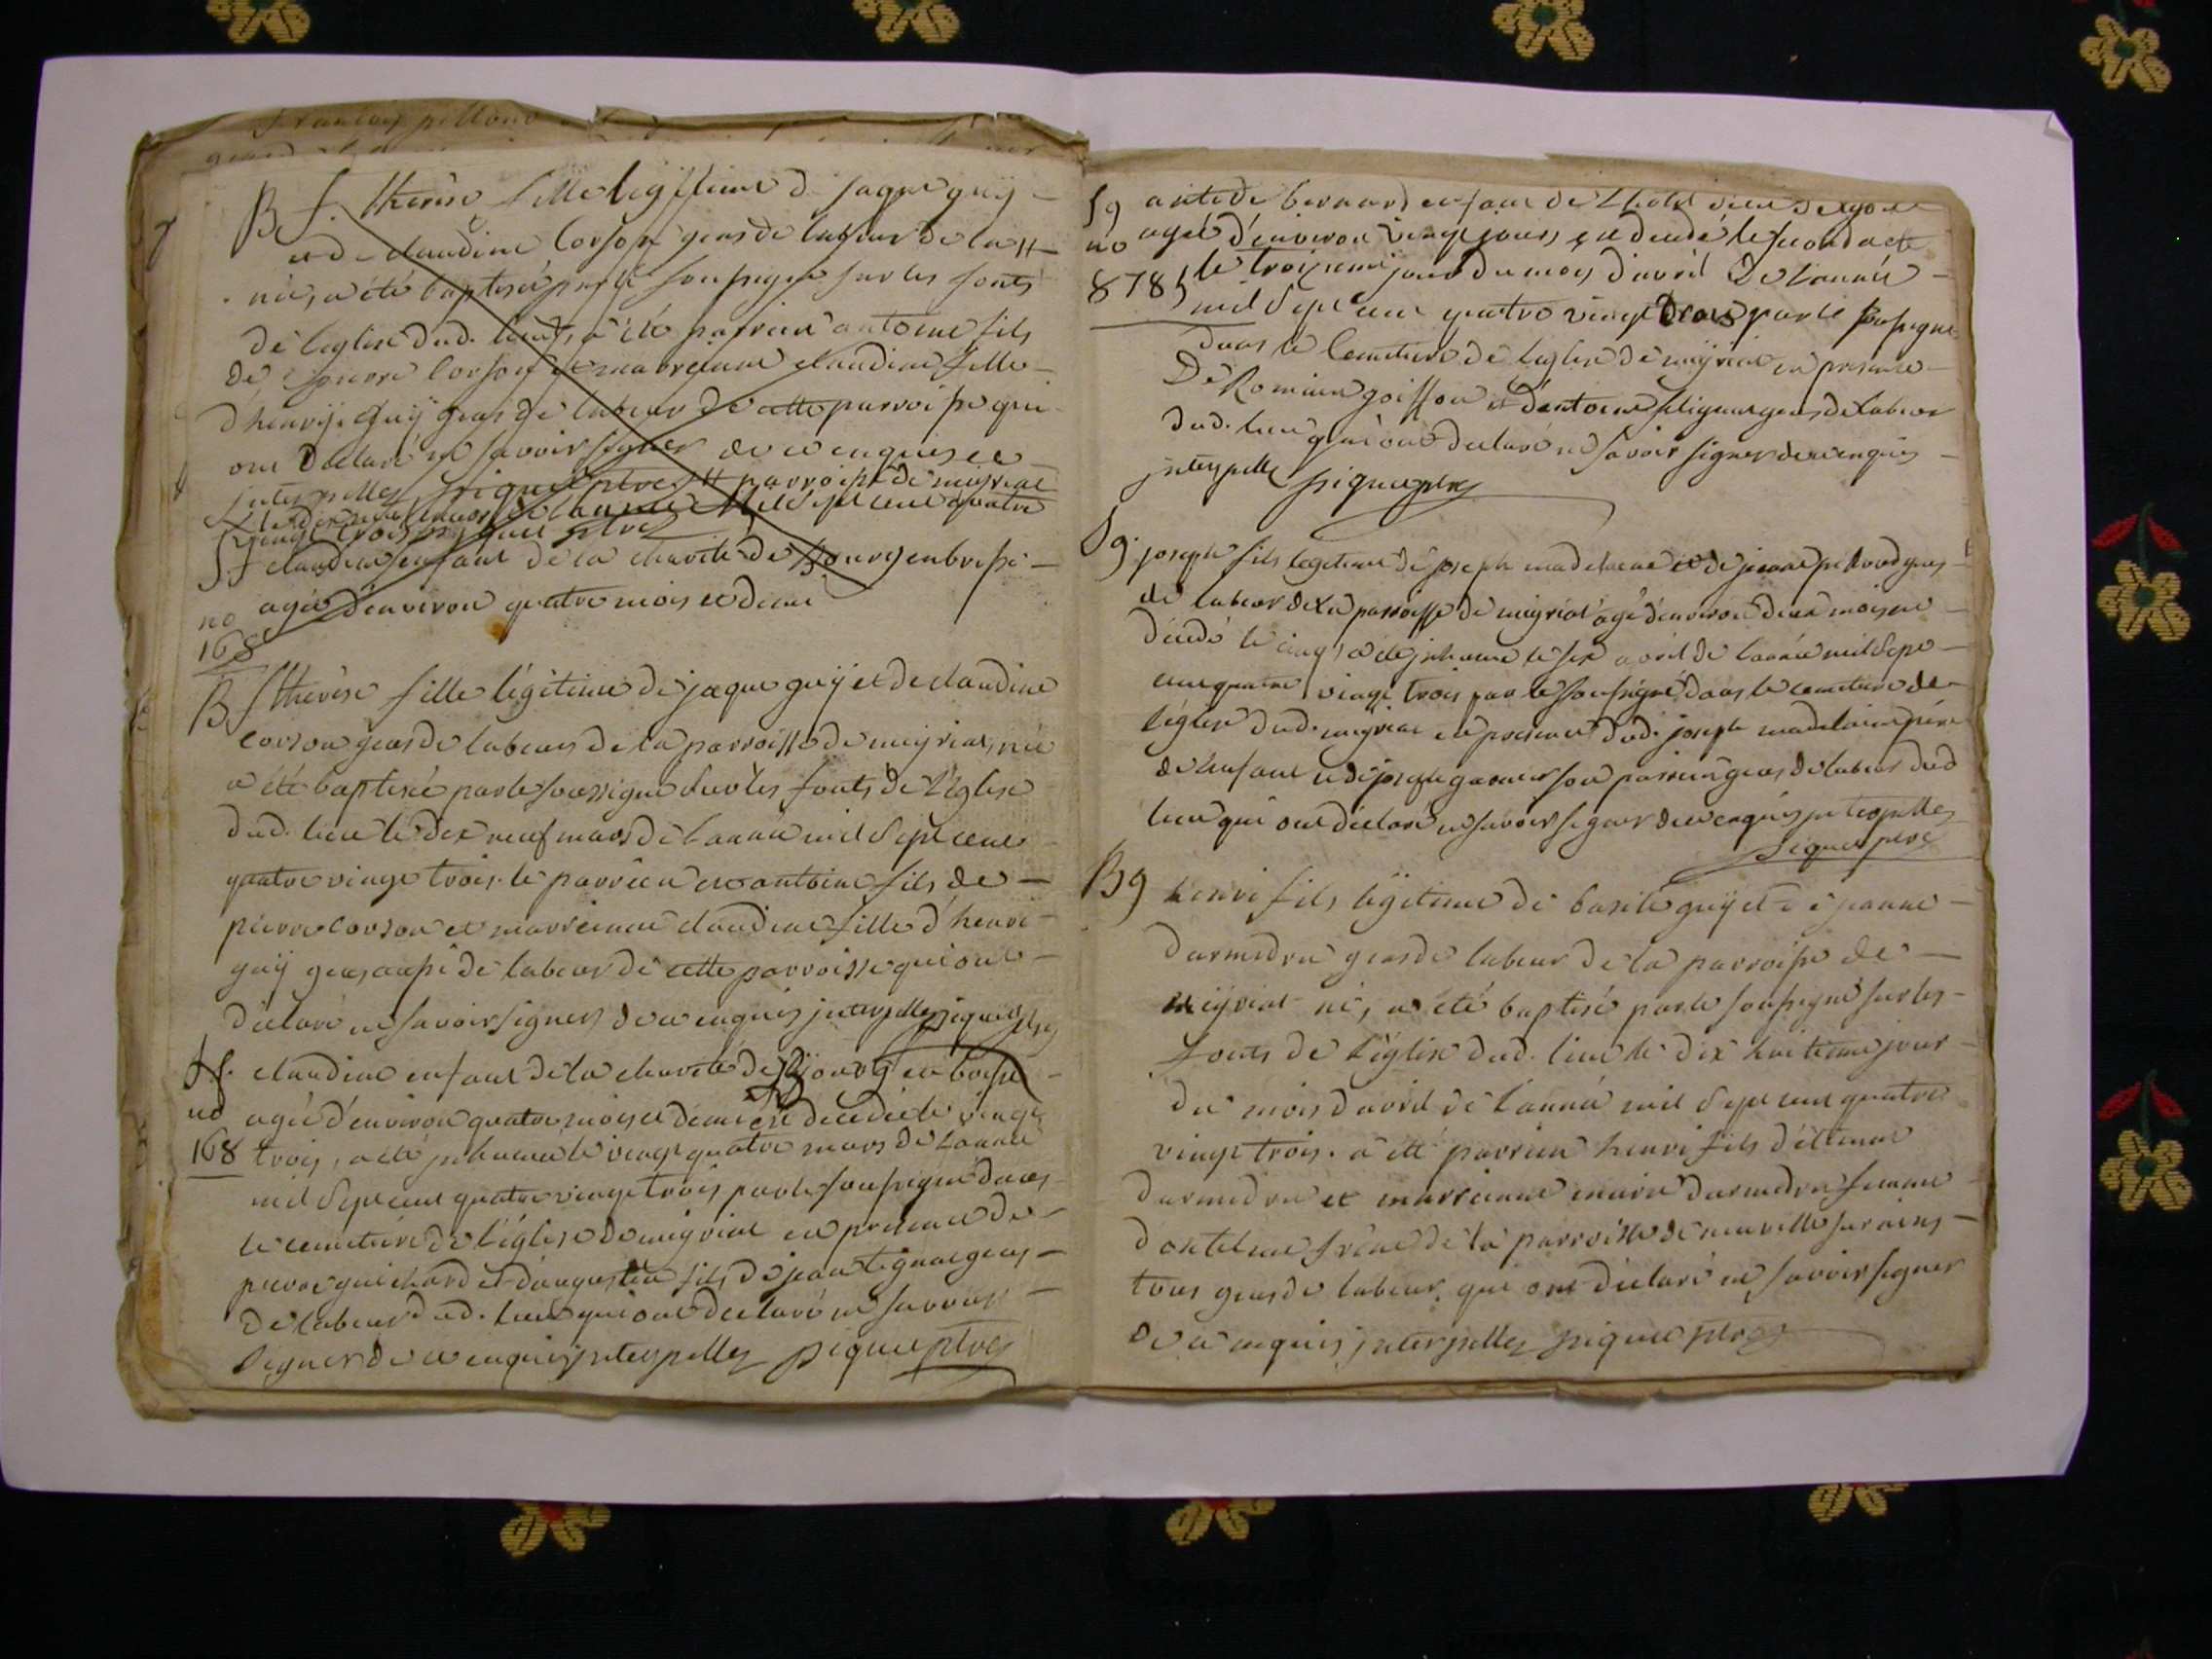 françois
B f. therése fille legitime de jaque guÿ
et de claudine Corson gens de labeur de la #
née, a été baptisée par le soussigné sur les fonts
de l'eglise dud. lieu, a été parrein antoine fils
de pierre Corson et marreinne claudine fille
d'henry guÿ gens de labeur de cette parroisse qui
ont déclaré ne savoir signer de ce enquis et
interpellés piquet ptre # parroisse de meÿriat
le dix neuf mars de l'année mil sept cent quatre
vingt trois piquet ptre
S f claudine enfant de la charité de Bourg en bresse
no agée d'environ quatre mois et demi
168
B f thérèse fille légitime de jaque guÿ et de claudine
corson gens de labeur de la parroisse de meyriat, née
a été baptisée par le soussigné sur les fonts de l'église
dud. lieu le dix neuf mars de l'année mil sept cent
quatre vingt trois. le parrein est antoine fils de
pierre corson et marreinne claudine fille d'henri
guÿ gens aussi de labeur de cette parroisse qui ont
déclaré ne savoir signer de ce enquis interpellés piquet ptre
S f. claudine enfant de la charité de Bourg en bresse
no agée d'environ quatre mois et demi est decedée le vingt
168 trois, a été inhumée le vingt quatre mars de l'année
mil sept cent quatre vingt trois par le soussigné dans
le cemetière de l'église de meyriat en presence de
pierre guichard et d'augustin fils de jean tignat gens
de labeur dud. lieu qui ont declaré ne savoir
signer de ce enquis interpellés piquet ptre
S g de bernard enfant de l'hotel dieu de lyon
no agé d'environ vingt jours, est decedé le second a été
8785 le troisieme jour du mois d'avril de l'année
mil sept cent quatre vingt trois par le soussigné
dans le cemetiere de l'eglise de meyriat en presence
de Romain goiffon et d'antoine gens de labeur
dud. lieu qui ont declaré ne savoir signer de ce enquis
interpellés piquet ptre
S g. joseph fils legitime de joseph madelaine et de jeanne gens
de labeur de la parroisse de meyriat agé d'environ deux mois est
décédé le cinq, a été inhumé le six avril de l'année mil sept
cent quatre vingt trois par le soussigné dans le cemetiere de
l'église dud. meyriat en presence dud. joseph madelaine père
de l'enfant et de joseph son parrein gens de labeur dud
lieu qui ont déclaré ne savoir signer de ce enquis interpellés
piquet ptre
B g henri fils légitime de basile guÿ et de jeanne
darmedru gens de labeur de la parroisse de
meÿriat né, a été baptisé par le soussigné sur les
fonts de l'église dud. lieu le dix huitieme jour
du mois d'avril de l'année mil sept cent quatre
vingt trois. a été parrein henri fils d'étienne
darmedru et marreinne marie darmedru femme
d'antelme de la parroisse de neuville sur ains
tous gens de labeur, qui ont déclaré ne savoir signer
de ce enquis interpellés piquet ptre